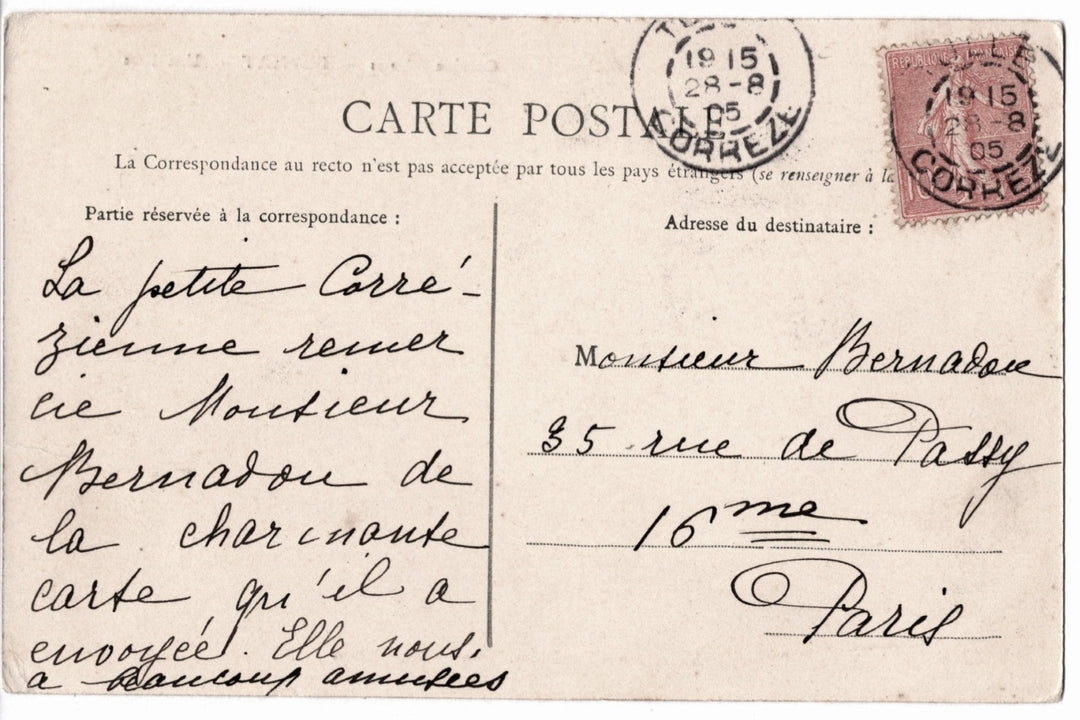 CARTE POSTALE
La Correspondance au recto n'est pas acceptée par tous les pays étrangers (se renseigner à la
TULLE
19 15
28-8
05
CORREZE
RÉPUBLIQUE FRANÇAISE
TULLE
19 15
28-8
05
CORREZE
10
Partie réservée à la correspondance :
La petite Corré-
zienne remer
cie Monsieur
Bernadou de
la charmante
carte qu'il a
envoyée. Elle nous
a beaucoup amusées
Adresse du destinataire :
Monsieur Bernadou
35 rue de Passy
16me
Paris